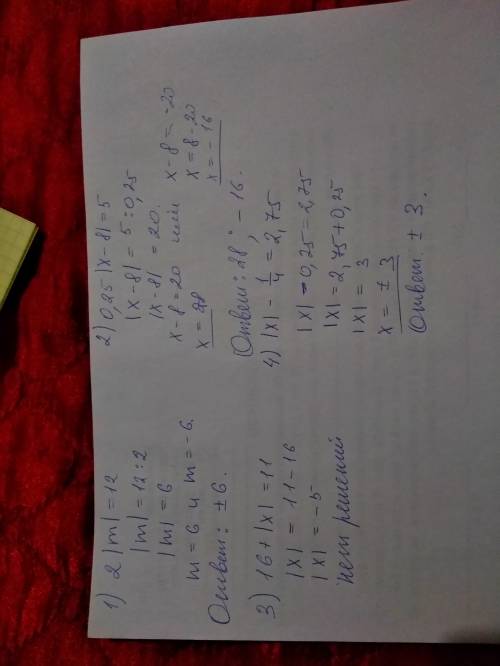 1) 2 |m| = 12
|m| = 12 : 2
|m| = 6
m = 6 и m = -6.
Ответ: ± 6.
2) 0,25 |x - 8| = 5
|x - 8| = 5 : 0,25
|x - 8| = 20.
x - 8 = 20 или x - 8 = -20
x = 28
x = 8 - 20
x = - 16
Ответ: 28 ; - 16.
3) 16 + |x| = 11
|x| = 11 - 16
|x| = -5
нет решений
4) |x| - 1/4 = 2,75
|x| - 0,25 = 2,75
|x| = 2,75 + 0,25
|x| = 3
x = ± 3
Ответ ± 3.